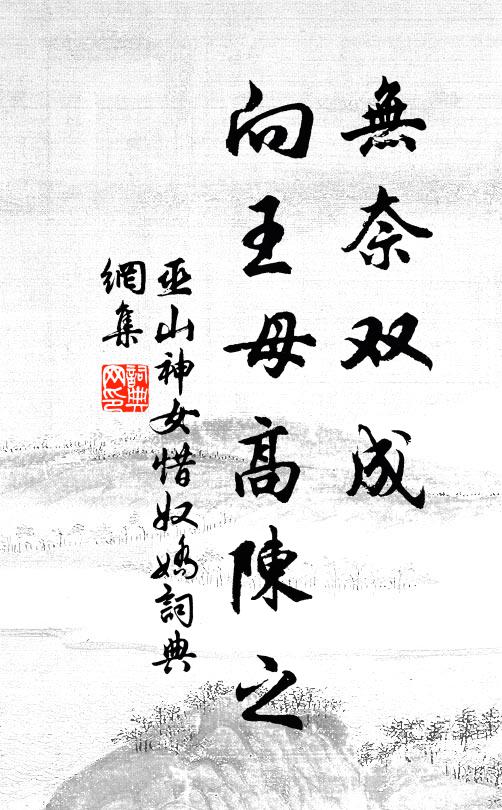 無奈双成
向王母高陳之
巫山神女惜奴嬌詞典
網集
詞典
网印